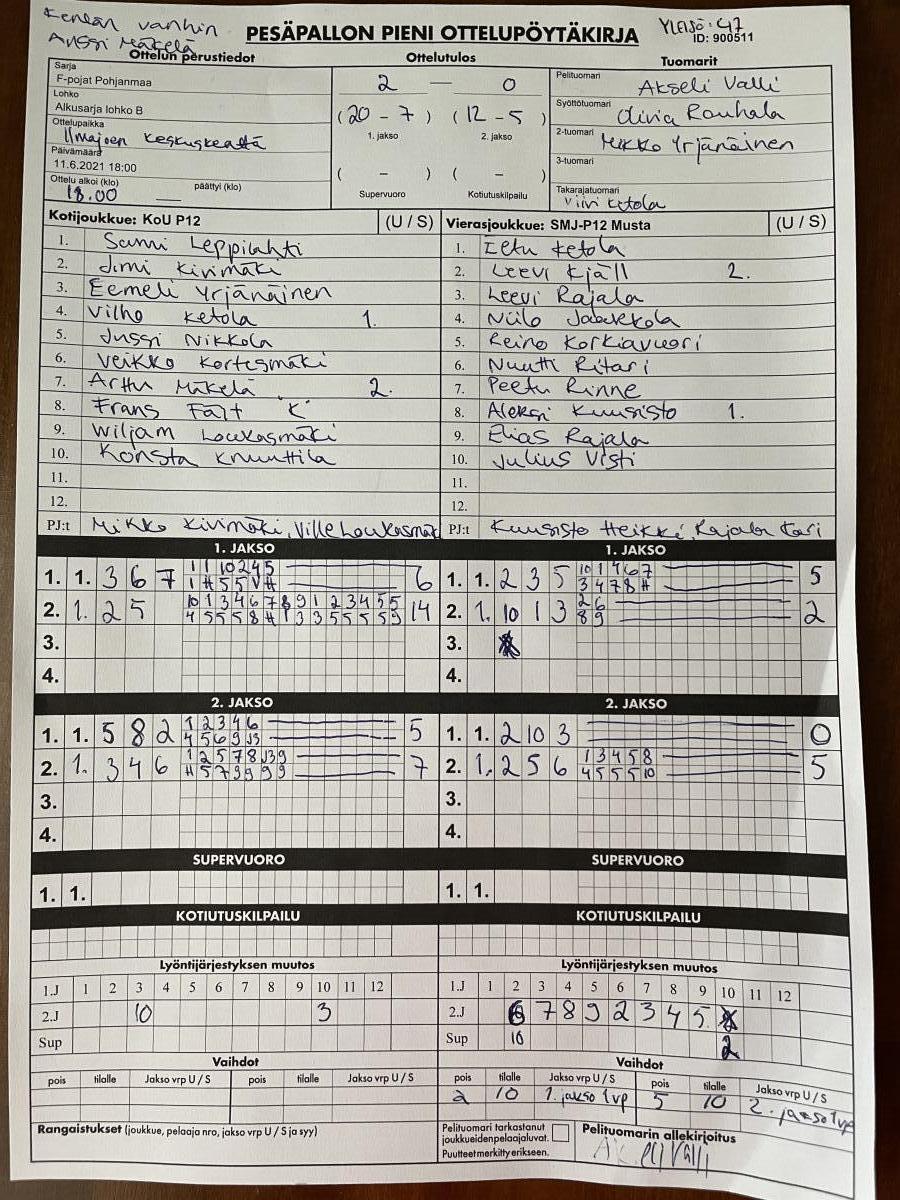 Kentän vanhin
Anssi Mäkelä
PESÄPALLON PIENI OTTELUPÖYTÄKIRJA
YLEISÖ: 47
ID: 900511
Ottelun perustiedot
Ottelutulos
Tuomarit
Sarja
F-pojat Pohjanmaa
Lohko
Alkusarja lohko B
Ottelupaikka
Ilmajoen keskuskenttä
Päivämäärä
11.6.2021 18:00
Ottelu alkoi (klo) päättyi (klo)
18.00
2 — 0
(20 - 7) (12 - 5)
1. jakso 2. jakso
( - ) ( - )
Supervuoro Kotiutuskilpailu
Pelituomari
Akseli Valli
Syöttötuomari
Olivia Rauhala
2-tuomari
Mikko Yrjänäinen
3-tuomari
Takarajatuomari
Viivi Ketola
Kotijoukkue: KoU P12 (U / S)
1. Sami Leppilahti
2. Jimi Kivimäki
3. Eemeli Yrjänäinen
4. Vilho Ketola 1.
5. Jussi Nikkola
6. Veikko Kortesmäki
7. Arttu Mäkelä 2.
8. Frans Fält "K"
9. Wiljam Loukasmäki
10. Konsta Knuuttila
11.
12.
PJ:t Mikko Kivimäki, Ville Loukasmäki
Vierasjoukkue: SMJ-P12 Musta (U / S)
1. Eetu Ketola
2. Leevi Kjäll 2.
3. Leevi Rajala
4. Niilo Jaakkola
5. Reino Korkiavuori
6. Nuutti Ritari
7. Peetu Rinne
8. Aleksi Kuusisto 1.
9. Elias Rajala
10. Julius Visti
11.
12.
PJ:t Kuusisto Heikki, Rajala Kari
1. JAKSO
1. 1. 3 6 7 1 1 10 2 4 5 6
1 # 5 5 V #
2. 1. 2 5 10 1 3 4 6 7 8 9 1 2 3 4 5 5 14
4 5 5 5 8 # 1 3 3 5 5 5 5 9
3.
4.
1. JAKSO
1. 1. 2 3 5 10 1 4 6 7 5
3 4 7 8 #
2. 1. 10 1 3 2 6 2
8 9
3.
4.
2. JAKSO
1. 1. 5 8 2 1 2 3 4 6 5
4 5 6 9
2. 1. 3 4 6 1 2 5 7 8 9 7
# 5 7 9 9 9 9
3.
4.
2. JAKSO
1. 1. 2 10 3 0
2. 1. 2 5 6 1 3 4 5 8 5
4 5 5 5 10
3.
4.
SUPERVUORO
1. 1.
SUPERVUORO
1. 1.
KOTIUTUSKILPAILU
KOTIUTUSKILPAILU
Lyöntijärjestyksen muutos
1.J 1 2 3 4 5 6 7 8 9 10 11 12
2.J 10 3
Sup
Lyöntijärjestyksen muutos
1.J 1 2 3 4 5 6 7 8 9 10 11 12
2.J 6 7 8 9 2 3 4 5
Sup 10 2
Vaihdot
pois tilalle Jakso vrp U / S pois tilalle Jakso vrp U / S
Vaihdot
pois tilalle Jakso vrp U / S pois tilalle Jakso vrp U / S
2 10 1. jakso 1vp 5 10 2. jakso 1vp
Rangaistukset (joukkue, pelaaja nro, jakso vrp U / S ja syy)
Pelituomari tarkastanut
joukkueidenpelaajaluvat.
Puutteet merkitty erikseen.
Pelituomarin allekirjoitus
Akseli Valli